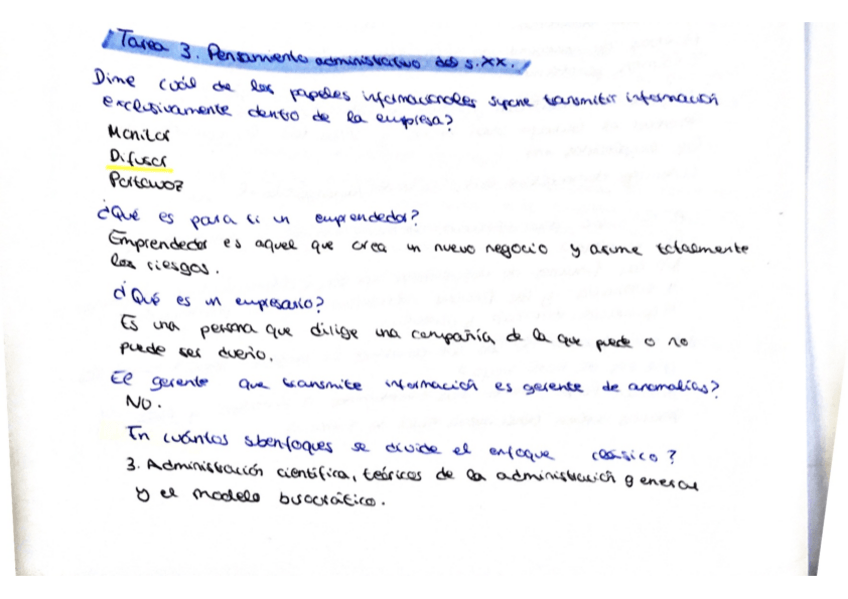 Tarea 3. Pensamiento administrativo del s.XX.
Dime cuál de los papeles informacionales supone transmitir información
exclusivamente dentro de la empresa?
Monitor
Difusor
Portavoz
¿Qué es para ti un emprendedor?
Emprendedor es aquel que crea un nuevo negocio y asume totalmente
los riesgos.
¿Qué es un empresario?
Es una persona que dirige una compañía de la que puede o no
puede ser dueño.
El gerente que transmite información es gerente de anomalías?
NO.
En cuántos subenfoques se divide el enfoque clásico?
3. Administración científica, teóricos de la administración general
y el modelo burocrático.